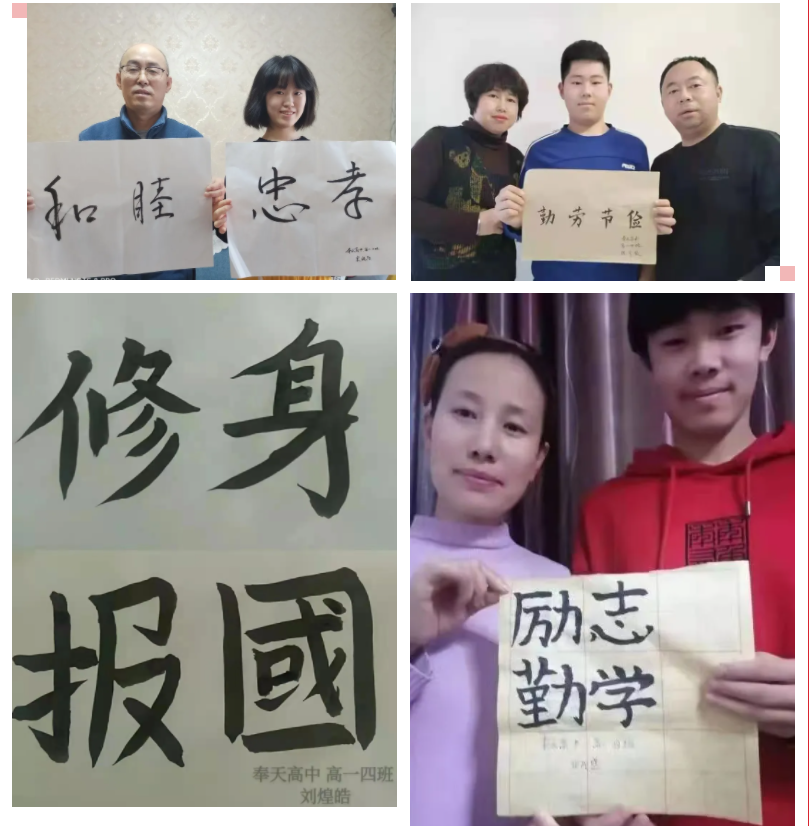 和睦
忠孝
勤劳节俭
修身
报國
奉天高中 高一四班
刘煌皓
励志
勤学